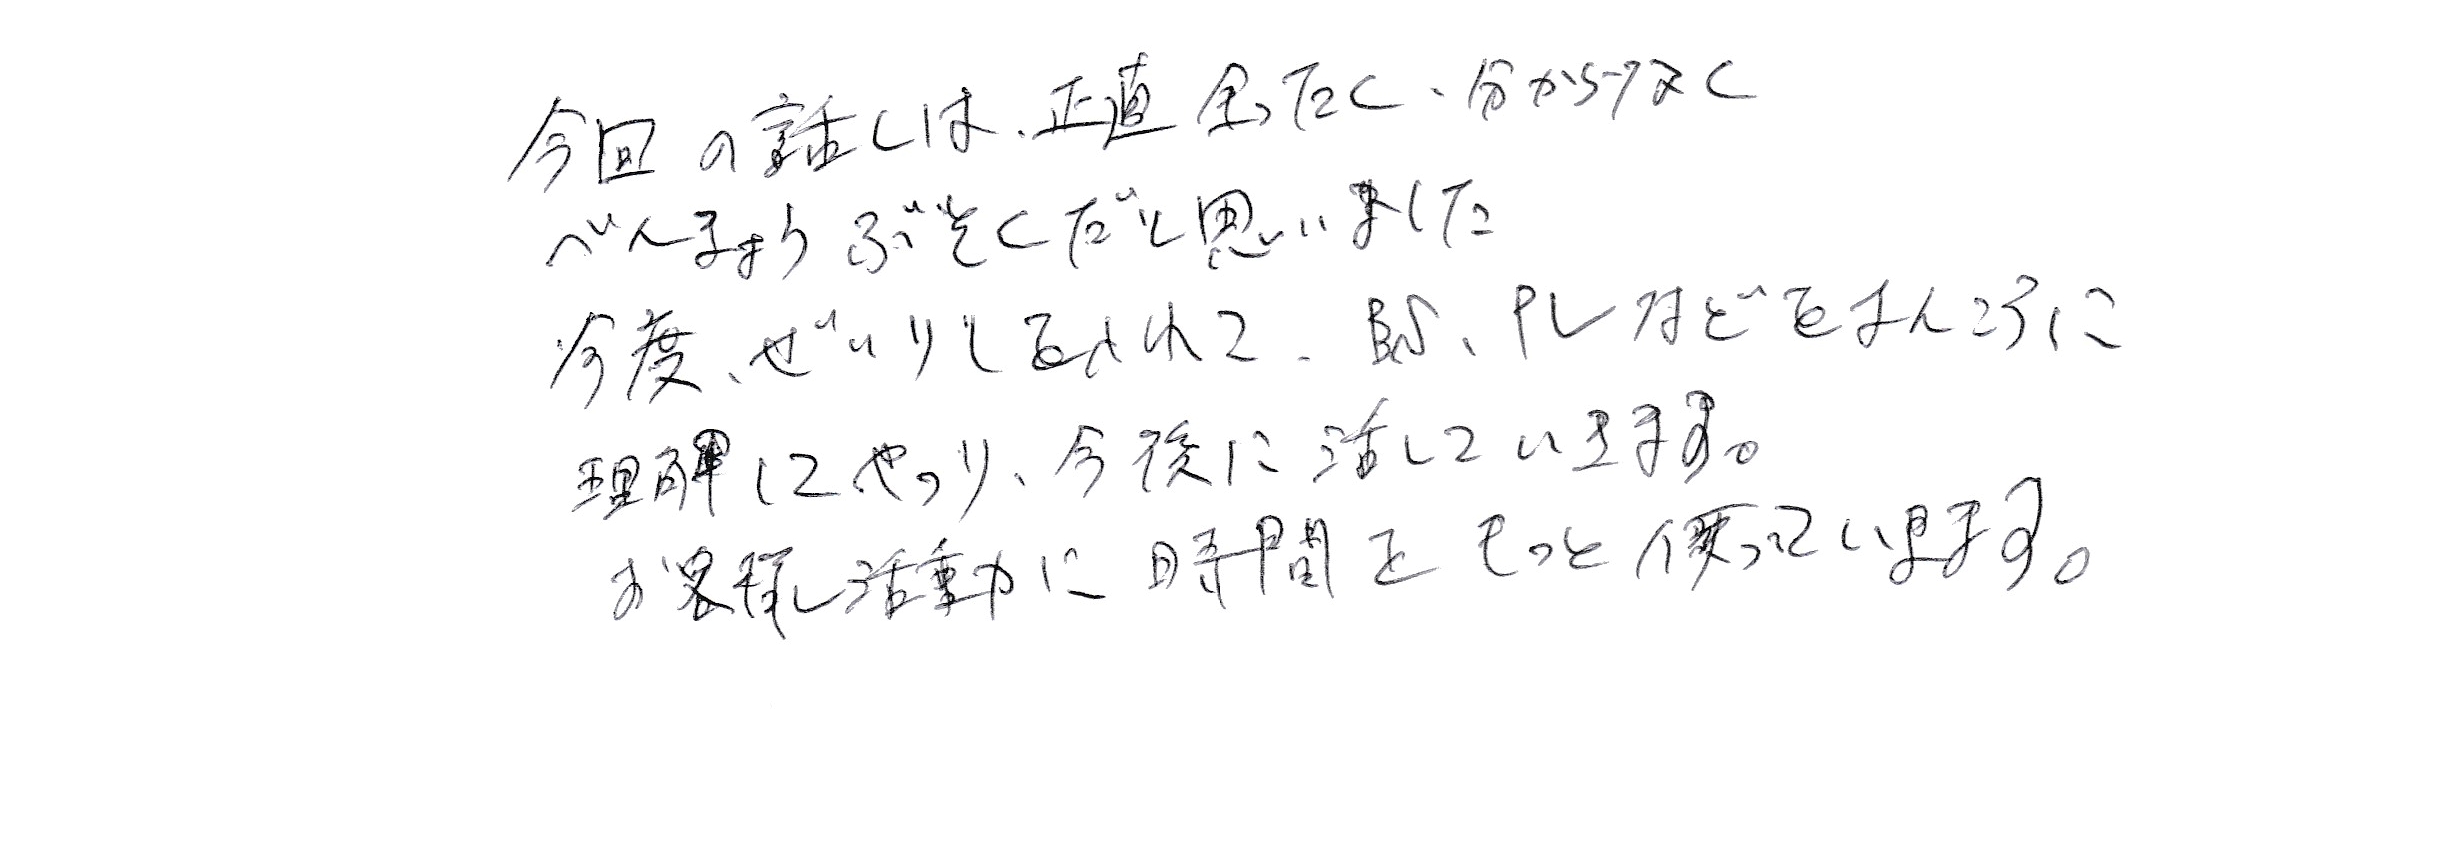 今回の話しは、正直全ったく、分からなく
べんきょうぶそくだと思いました
今度、ぜいりしをよれて、BS、PLなどをまんこうに
理解してやつり、今後に活していきます。
お客様し活動に時間をもっと使っていきます。